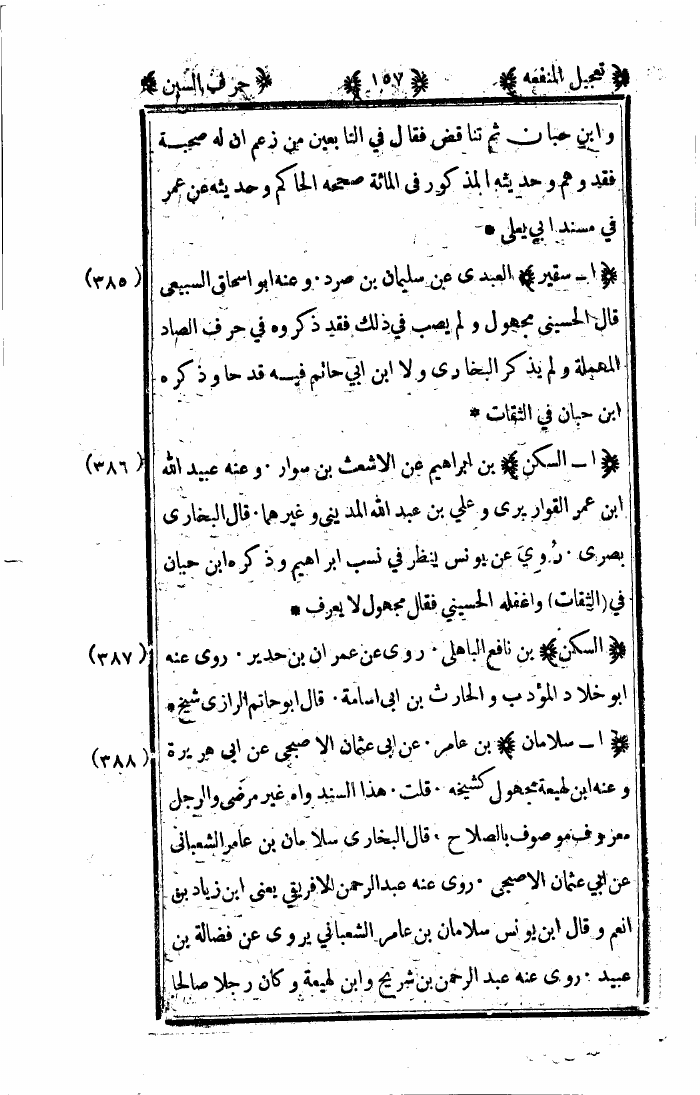 ﴿ تعجيل المنفعة ﴾ ﴿ ١٥٧ ﴾ ﴿ حرف السين ﴾
وابن حبان ثم تناقض فقال في التابعين من زعم ان له صحبة
فقد وهم وحديثه المذكور في المائة صححه الحاكم وحديثه عن عمر
في مسند ابي يعلى *
(٣٨٥) ﴿ ا ــ سقير ﴾ العبدى عن سليمان بن صرد · وعنه ابو اسحاق السبيعى
قال الحسينى مجهول ولم يصب في ذلك فقد ذكروه في حرف الصاد
المهملة ولم يذكر البخارى ولا ابن ابي حاتم فيه قدحا وذكره
ابن حبان في الثقات *
(٣٨٦) ﴿ ا ــ السكن ﴾ بن ابراهيم عن الاشعث بن سوار · وعنه عبيد الله
ابن عمر القواريرى وعلي بن عبد الله المدينى وغيرهما · قال البخارى
بصرى · رُوِيَ عن يونس ينظر في نسب ابراهيم وذكره ابن حبان
في (الثقات) واغفله الحسيني فقال مجهول لا يعرف *
(٣٨٧) ﴿ السكن ﴾ بن نافع الباهلى · روى عن عمران بن حدير · روى عنه
ابو خلاد المؤدب والحارث بن ابى اسامة · قال ابو حاتم الرازى شيخ *
(٣٨٨) ﴿ ا ــ سلامان ﴾ بن عامر · عن ابى عثمان الاصبحى عن ابى هريرة
وعنه ابن لهيعة مجهول كشيخه · قلت · هذا السند واه غير مرضى والرجل
معروف موصوف بالصلاح · قال البخارى سلامان بن عامر الشعبانى
عن ابي عثمان الاصبحى · روى عنه عبد الرحمن الافريقي يعنى ابن زياد بن
انعم وقال ابن يونس سلامان بن عامر الشعباني يروى عن فضالة بن
عبيد · روى عنه عبد الرحمن بن شريح وابن لهيعة وكان رجلا صالحا